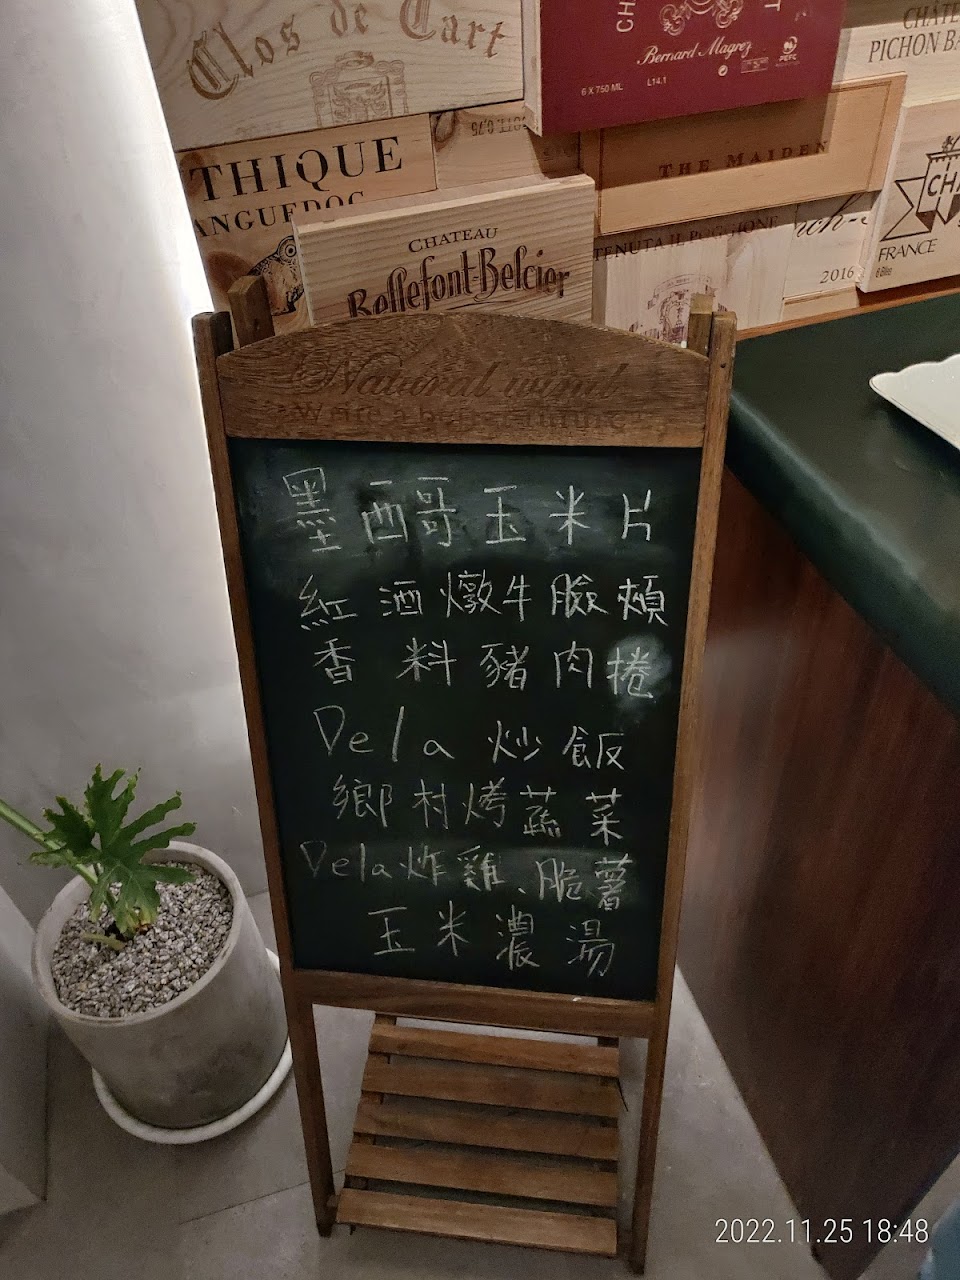 Clos de Tart
CH
Bernard Magrez
6 X 750 ML L14.1
PEFC
CHÂTE
PICHON BA
THIQUE
ANGUEDOC
THE MAIDEN
CHATEAU
Bellefont-Belcier
TENUTA IL POGGIONE
2016
CH
FRANCE
6 Btles
Natural wind
Write a better future
墨西哥玉米片
紅酒燉牛臉頰
香料豬肉捲
Dela 炒飯
鄉村烤蔬菜
Dela炸雞、脆薯
玉米濃湯
2022.11.25 18:48